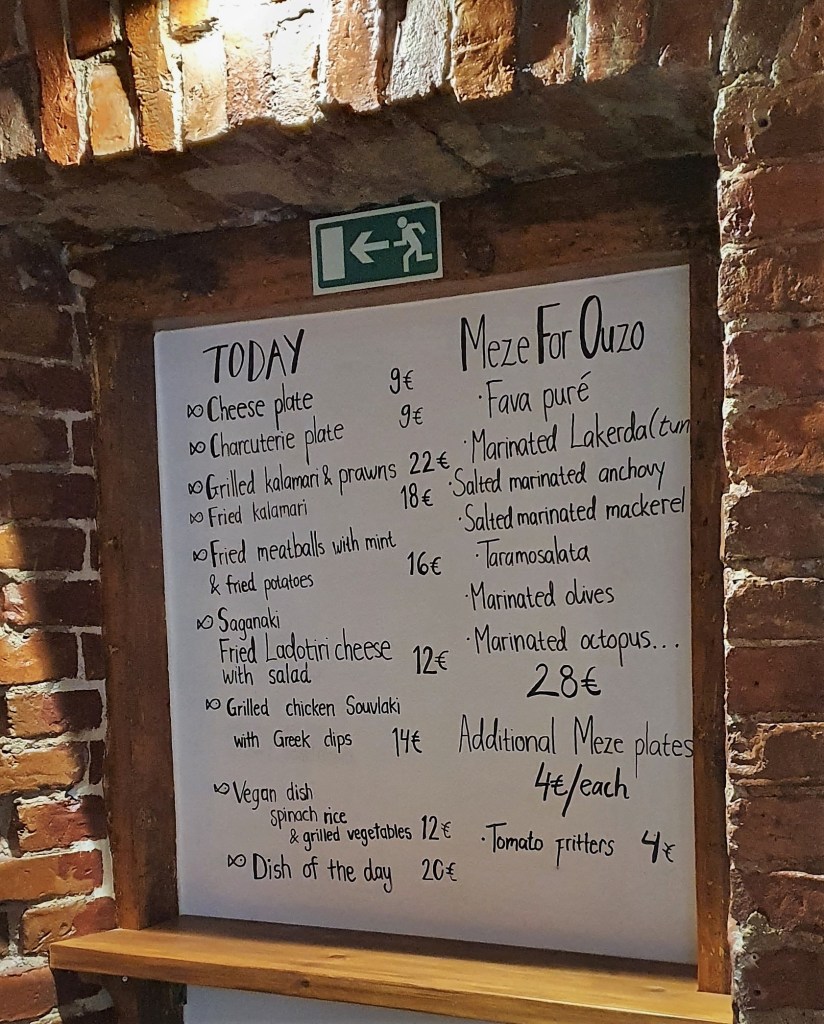 TODAY
Cheese plate 9€
Charcuterie plate 9€
Grilled kalamari & prawns 22€
Fried kalamari 18€
Fried meatballs with mint
& fried potatoes 16€
Saganaki
Fried Ladotiri cheese
with salad 12€
Grilled chicken Souvlaki
with Greek dips 14€
Vegan dish
spinach rice
& grilled vegetables 12€
Dish of the day 20€
Meze For Ouzo
· Fava puré
· Marinated Lakerda (tun
· Salted marinated anchovy
· Salted marinated mackerel
· Taramosalata
· Marinated olives
· Marinated octopus...
28€
Additional Meze plates
4€/each
· Tomato fritters 4€